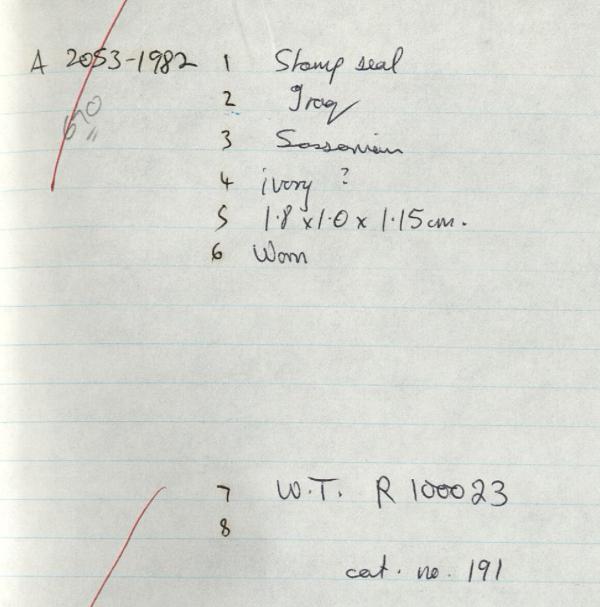 A 2053-1982 1 Stamp seal
2 Iraq
3 Sassanian
4 ivory ?
5 1.8 x 1.0 x 1.15 cm.
6 Worn
7 W.T. R 100023
8
cat. no. 191